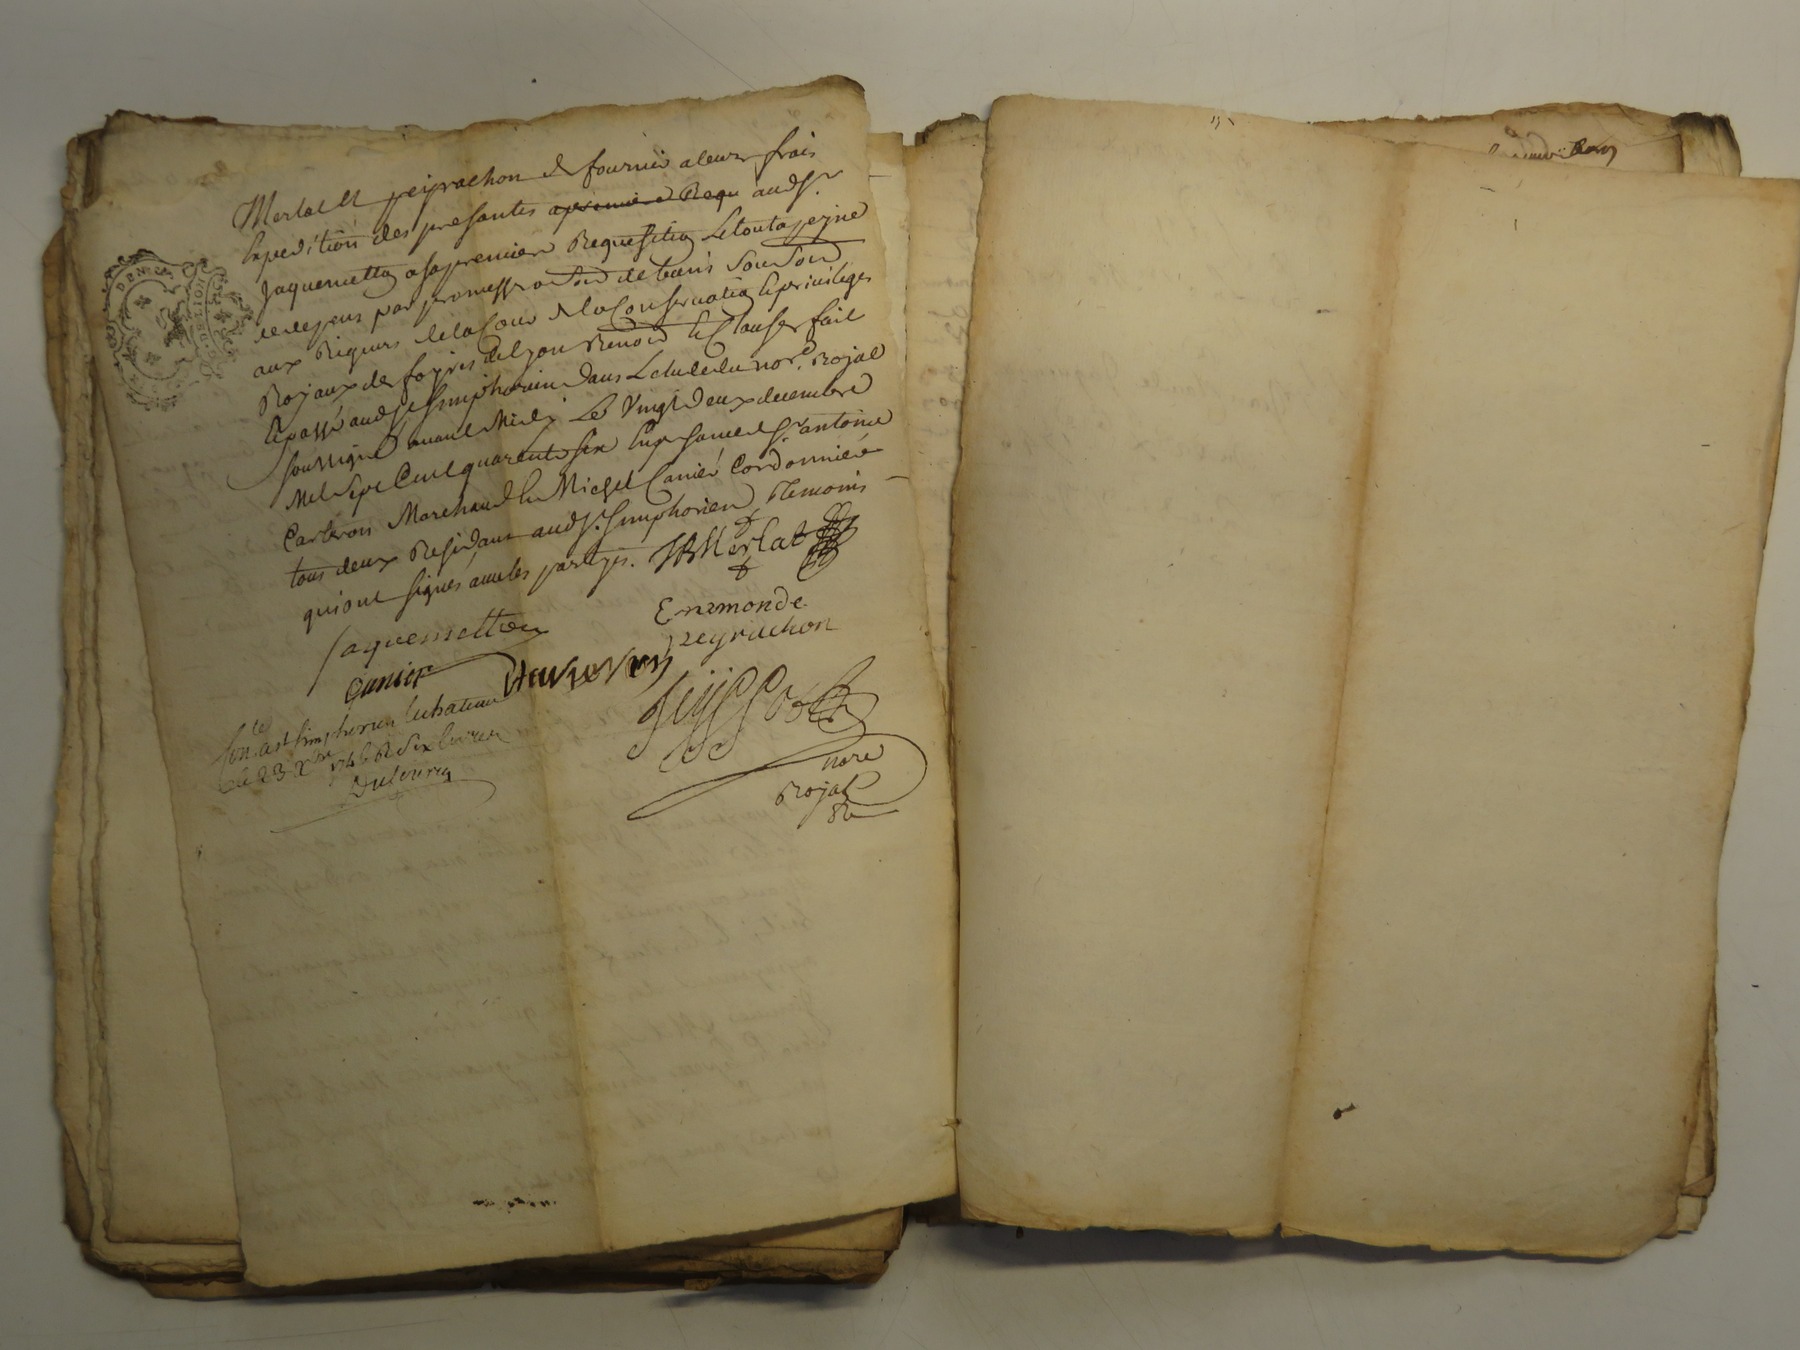 Merlat et peyrachon de fournir a leurs frais
Expedition des presantes a premiere Requ audt Sr
Jaquemetton a sa premiere Requesition Le tout a peyne
de depens par promesse
aux Rigueurs de la Cour de la Conservation des privileges
Royaux des foyres de Lyon Renon Et Clauses fait
Et passé audt St Simphorien dans Letude du nore Royal
soussigné avant Midy Le Vingt deux decembre
Mil Sept Cent quarente six En presance de Sr antoine
Carteron Marchand Et Michel Canier Cordonnier
tous deux Residant audt St Simphorien temoins
qui ont signés avec les partyes. JB Merlat
Enemonde
peyrachon
Jaquemetton
Canier
nore
Royal
Con.le a st simphorien le chateau
le 23 Xbre 1746 R six livres